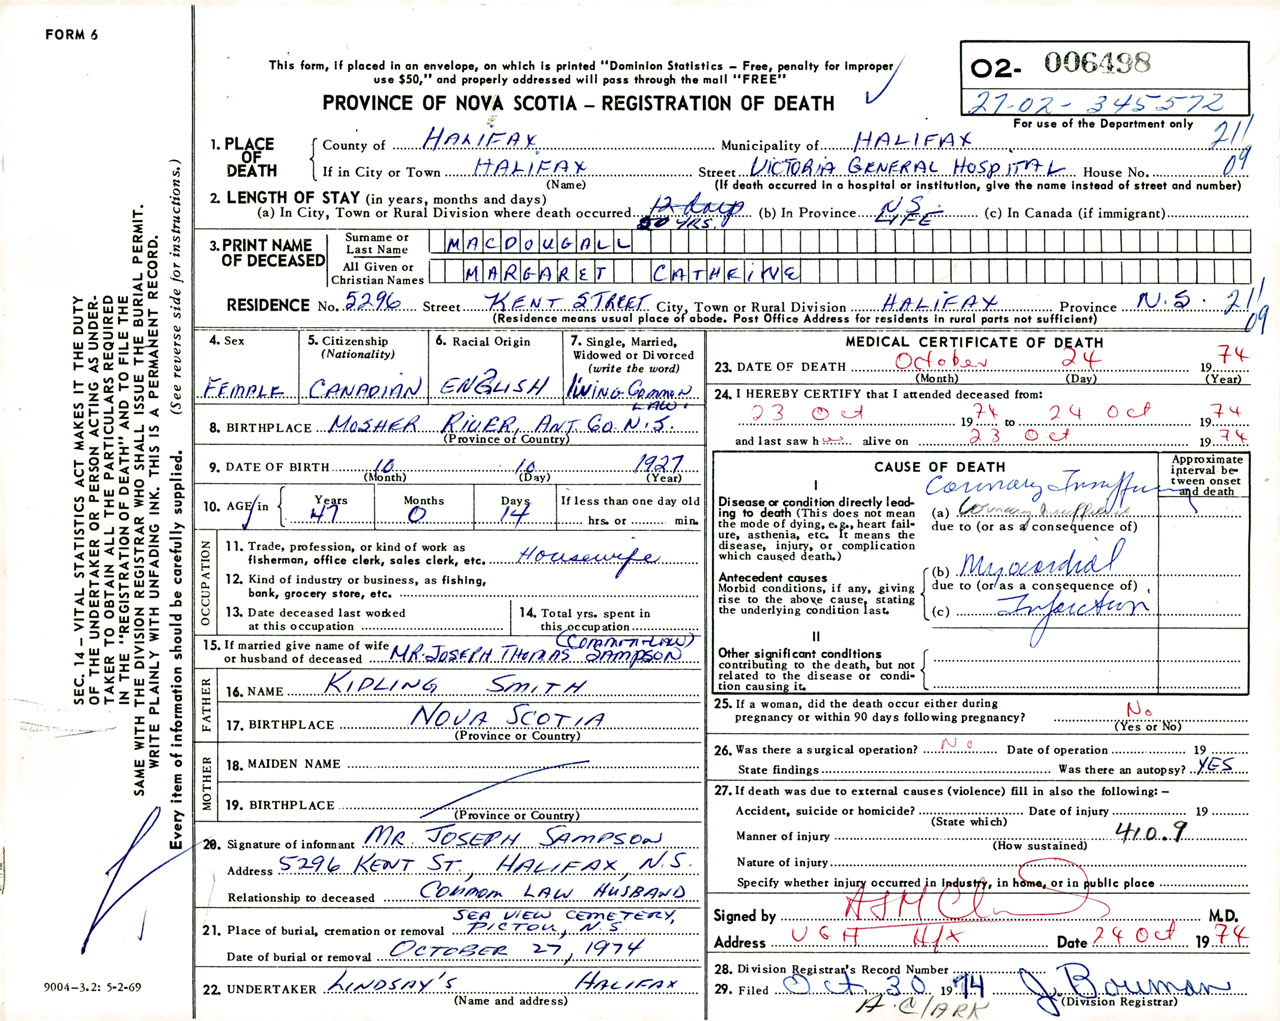 FORM 6
This form, if placed in an envelope, on which is printed "Dominion Statistics – Free, penalty for improper
use $50," and properly addressed will pass through the mail "FREE"
PROVINCE OF NOVA SCOTIA – REGISTRATION OF DEATH
O2- 006498
27-02-345572
For use of the Department only
211
09
1. PLACE OF DEATH
County of HALIFAX Municipality of HALIFAX
If in City or Town HALIFAX Street VICTORIA GENERAL HOSPITAL House No.
(Name) (If death occurred in a hospital or institution, give the name instead of street and number)
2. LENGTH OF STAY (in years, months and days)
(a) In City, Town or Rural Division where death occurred 12 days 50 YRS. (b) In Province N.S. LIFE (c) In Canada (if immigrant)
3. PRINT NAME OF DECEASED
Surname or Last Name MACDOUGALL
All Given or Christian Names MARGARET CATHEINE
RESIDENCE No. 5296 Street KENT STREET City, Town or Rural Division HALIFAX Province N.S. 211
09
(Residence means usual place of abode. Post Office Address for residents in rural parts not sufficient)
4. Sex
FEMALE
5. Citizenship
(Nationality)
CANADIAN
6. Racial Origin
ENGLISH
7. Single, Married,
Widowed or Divorced
(write the word)
living Common
LAW.
8. BIRTHPLACE MOSHER RIVER, ANT. Co. N.S.
(Province or Country)
9. DATE OF BIRTH 10 10 1927
(Month) (Day) (Year)
10. AGE in
Years Months Days If less than one day old
47 0 14 hrs. or min.
OCCUPATION
11. Trade, profession, or kind of work as
fisherman, office clerk, sales clerk, etc. HOUSEWIFE
12. Kind of industry or business, as fishing,
bank, grocery store, etc.
13. Date deceased last worked
at this occupation
14. Total yrs. spent in
this occupation
15. If married give name of wife (COMMON-LAW)
or husband of deceased MR. JOSEPH THOMAS SAMPSON
FATHER
16. NAME KIDLING SMITH
17. BIRTHPLACE NOVA SCOTIA
(Province or Country)
MOTHER
18. MAIDEN NAME
19. BIRTHPLACE
(Province or Country)
20. Signature of informant MR. JOSEPH SAMPSON
Address 5296 KENT ST., HALIFAX, N.S.
Relationship to deceased COMMON LAW HUSBAND
SEA VIEW CEMETERY,
21. Place of burial, cremation or removal PICTOU, N.S.
Date of burial or removal OCTOBER 27, 1974
22. UNDERTAKER LINDSAY'S HALIFAX
(Name and address)
MEDICAL CERTIFICATE OF DEATH
23. DATE OF DEATH October 24 1974
(Month) (Day) (Year)
24. I HEREBY CERTIFY that I attended deceased from:
23 Oct 1974 to 24 Oct 1974
and last saw her alive on 23 Oct 1974
CAUSE OF DEATH
Approximate
interval be-
tween onset
and death
I
Disease or condition directly lead-
ing to death (This does not mean
the mode of dying, e.g., heart fail-
ure, asthenia, etc. It means the
disease, injury, or complication
which caused death.)
Coronary Insufficiency
(a) Coronary Insufficiency
due to (or as a consequence of)
Antecedent causes
Morbid conditions, if any, giving
rise to the above cause, stating
the underlying condition last.
(b) Myocardial
due to (or as a consequence of)
(c) Infarction
II
Other significant conditions
contributing to the death, but not
related to the disease or condi-
tion causing it.
25. If a woman, did the death occur either during
pregnancy or within 90 days following pregnancy? No
(Yes or No)
26. Was there a surgical operation? No Date of operation 19
State findings Was there an autopsy? YES
27. If death was due to external causes (violence) fill in also the following: –
Accident, suicide or homicide? Date of injury 19
(State which)
Manner of injury 410.9
(How sustained)
Nature of injury
Specify whether injury occurred in industry, in home, or in public place
Signed by M.D.
Address VGH Hfx Date 24 Oct 1974
28. Division Registrar's Record Number
29. Filed Oct. 30 1974 J. Bouman
(Division Registrar)
A. CLARK
SEC. 14 – VITAL STATISTICS ACT MAKES IT THE DUTY
OF THE UNDERTAKER OR PERSON ACTING AS UNDER-
TAKER TO OBTAIN ALL THE PARTICULARS REQUIRED
IN THE "REGISTRATION OF DEATH" AND TO FILE THE
SAME WITH THE DIVISION REGISTRAR WHO SHALL ISSUE THE BURIAL PERMIT.
WRITE PLAINLY WITH UNFADING INK. THIS IS A PERMANENT RECORD.
Every item of information should be carefully supplied. (See reverse side for instructions.)
9004-3.2: 5-2-69